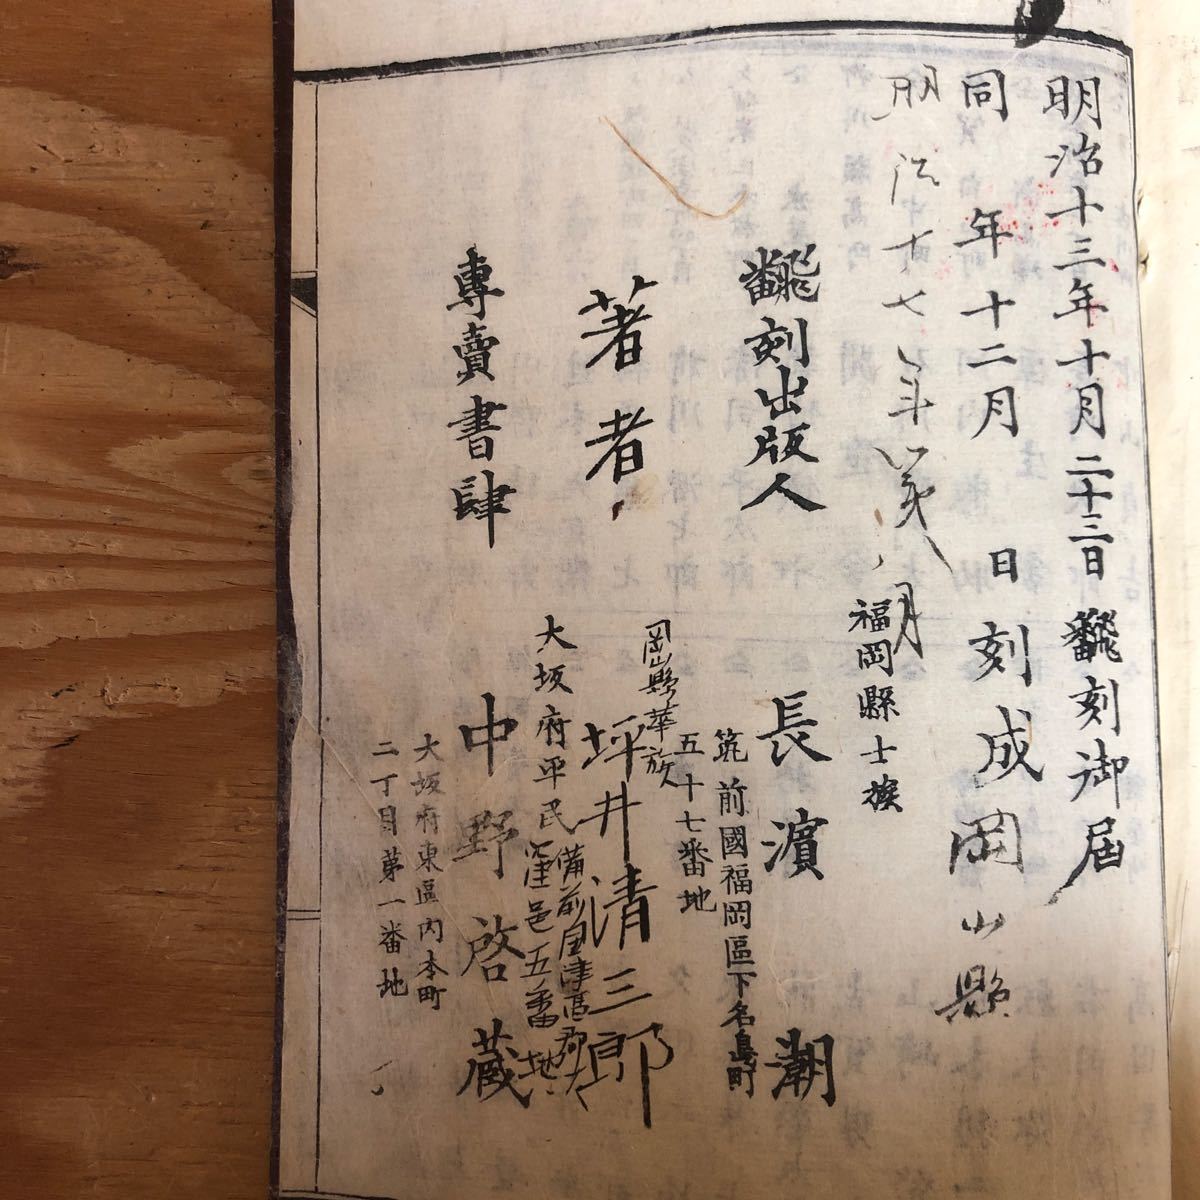 明治十三年十月二十三日飜刻御届
同年十二月 日刻成岡山縣
明治十七年 月
福岡縣士族
飜刻出版人 長濵潮
筑前國福岡區下名島町
五十七番地
岡山縣華族
著者 坪井清三郎
備前國津高郡
大坂府平民
窪邑五番地
專賣書肆 中野啓蔵
大坂府東區内本町
二丁目第一番地